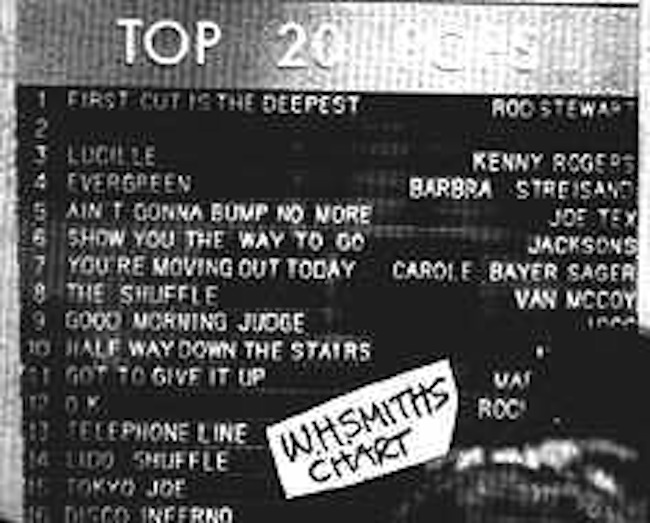 TOP 20 45's
1 FIRST CUT IS THE DEEPEST ROD STEWART
2
3 LUCILLE KENNY ROGERS
4 EVERGREEN BARBRA STREISAND
5 AIN T GONNA BUMP NO MORE JOE TEX
6 SHOW YOU THE WAY TO GO JACKSONS
7 YOU'RE MOVING OUT TODAY CAROLE BAYER SAGER
8 THE SHUFFLE VAN MCCOY
9 GOOD MORNING JUDGE 10CC
10 HALF WAY DOWN THE STAIRS
11 GOT TO GIVE IT UP MAR
12 O.K. ROCK
13 TELEPHONE LINE
14 LIDO SHUFFLE
15 TOKYO JOE
16 DISCO INFERNO
W.H SMITHS
CHART